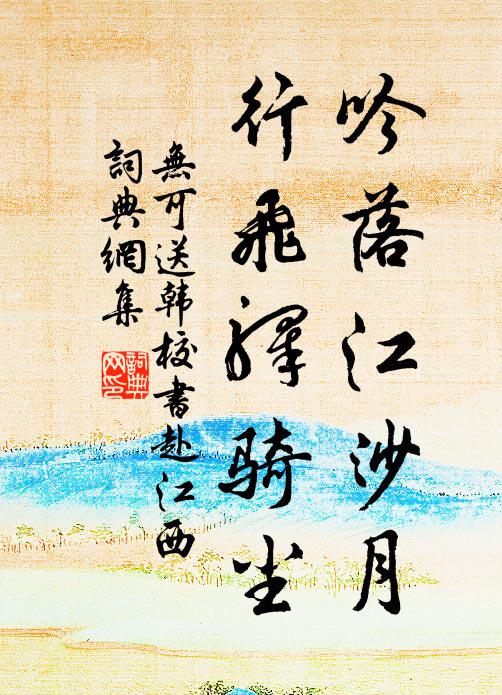 吟落江沙月
行飛驛騎尘
無可送韓校書赴江西
詞典網集
詞典
网印